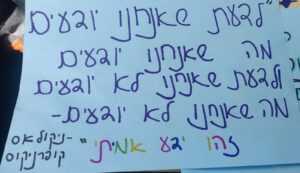 "לדעת שאנחנו יודעים
מה שאנחנו יודעים
ולדעת שאנחנו לא יודעים
מה שאנחנו לא יודעים-
זהו ידע אמיתי"
-ניקולאס
קופרניקוס